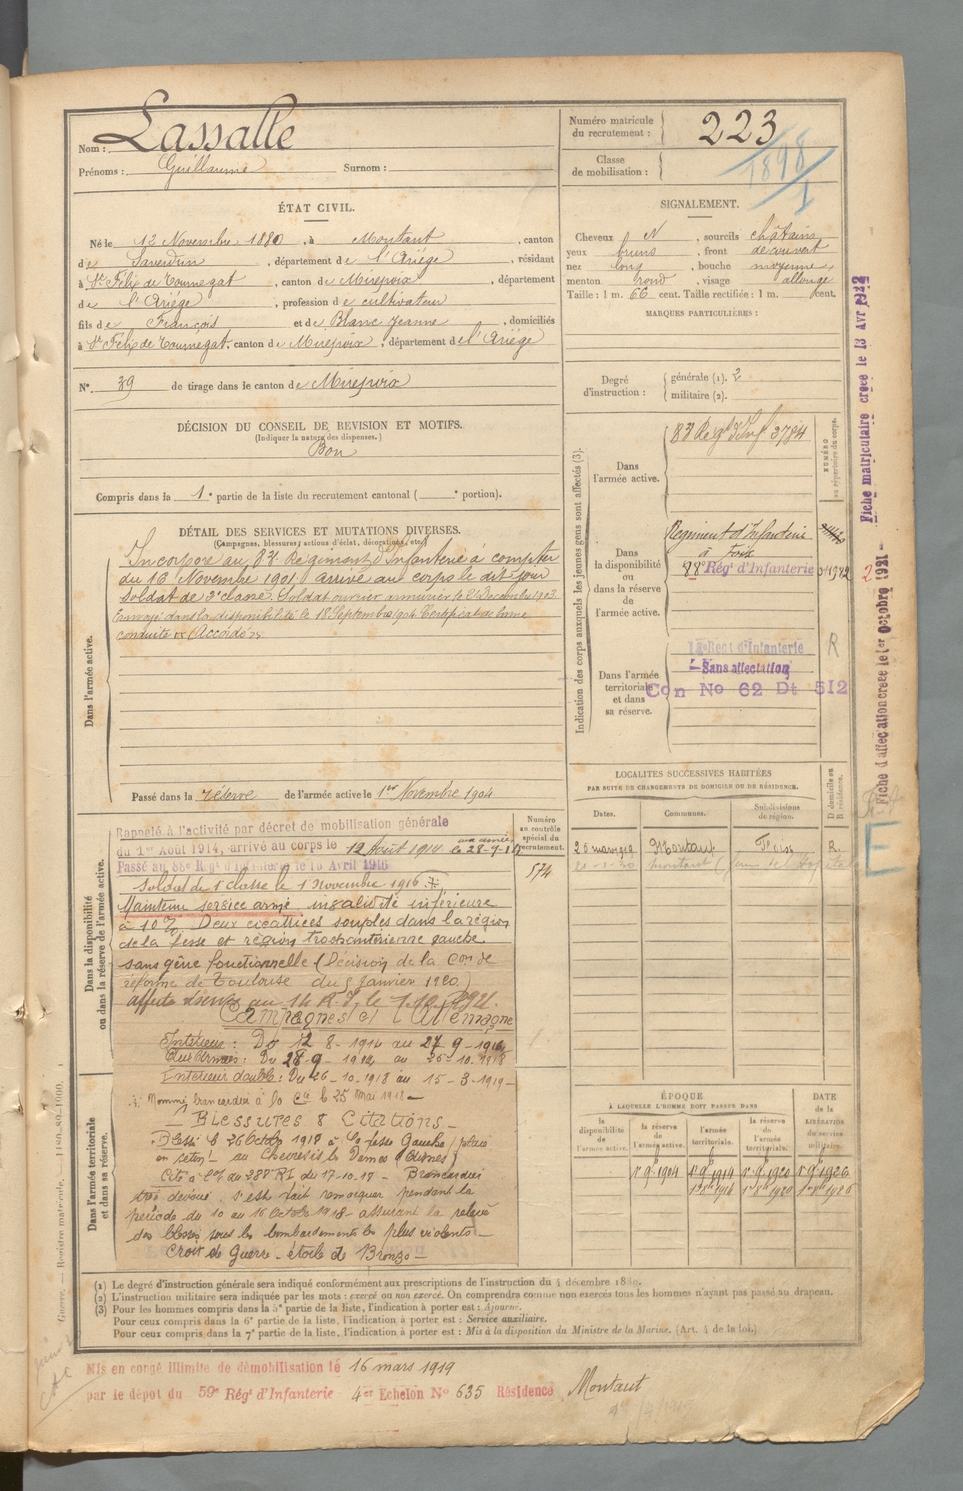 Nom : Lassalle
Prénoms : Guillaume Surnom :
ÉTAT CIVIL.
Né le 13 Novembre 1880, à Montaut, canton
de Saverdun, département de l'Ariège, résidant
à St Félix de Tournegat, canton de Mirepoix, département
de l'Ariège, profession de cultivateur
fils de François et de Blanc Jeanne, domiciliés
à St Félix de Tournégat, canton de Mirepoix, département de l'Ariège
N° 39 de tirage dans le canton de Mirepoix
DÉCISION DU CONSEIL DE REVISION ET MOTIFS.
(Indiquer la nature des dispenses.)
Bon
Compris dans la 1e partie de la liste du recrutement cantonal ( e portion).
DÉTAIL DES SERVICES ET MUTATIONS DIVERSES.
(Campagnes, blessures, actions d'éclat, décorations, etc.)
Dans l'armée active.
Incorporé au 83e Régiment d'Infanterie à compter
du 16 Novembre 1901, arrivé au corps le dit jour
Soldat de 2e classe. Soldat ouvrier armurier le 21 Décembre 1903.
Envoyé dans la disponibilité le 18 Septembre 1904. Certificat de bonne
conduite Accordé
Passé dans la réserve de l'armée active le 1er Novembre 1904
Dans la disponibilité ou dans la réserve de l'armée active.
Rappelé à l'activité par décret de mobilisation générale
du 1er Août 1914, arrivé au corps le 12 Août 1914 aux armées le 28-9-14
Passé au 88e Régt d'Infanterie le 10 Avril 1916
Soldat de 1e classe le 1 Novembre 1916
Maintenu service armé invalidité inférieure
à 10 % Deux cicatrices souples dans la région
de la fesse et région trochantérienne gauche
sans gêne fonctionnelle (Décision de la Con de
réforme de Toulouse du 5 Janvier 1920)
au 14 R.I. le 1.10.1921.
Campagnes et l'Allemagne
Intérieur : Du 12 8 - 1914 au 27 9 - 1914
Aux Armées : Du 28-9 - 1914 au 26-10-1918
Intérieur double : Du 26 - 10 - 1918 au 15 - 3 - 1919 -
Nommé brancardier à la Cie le 25 Mai 1918 -
Dans l'armée territoriale et dans sa réserve.
- Blessures & Citations -
Blessé le 26 Octobre 1918 à la fesse Gauche (plaie
en seton) au Chevresis les Dames (Aisnes)
Cité à l'O. du 288e RI du 17-10-17 - Brancardier
très dévoué, s'est fait remarquer pendant la
période du 10 au 16 Octobre 1918 - assurant la relève
des blessés sous les bombardements les plus violents -
Croix de Guerre - étoile de Bronze -
Numéro au contrôle spécial du recrutement.
574
Numéro matricule du recrutement : 223
Classe de mobilisation : 1898
SIGNALEMENT.
Cheveux N, sourcils châtains
yeux bruns, front découvert
nez long, bouche moyenne,
menton rond, visage allongé
Taille : 1 m. 66 cent. Taille rectifiée : 1 m. cent.
MARQUES PARTICULIÈRES :
Degré d'instruction : générale (1). 2
militaire (2).
Indication des corps auxquels les jeunes gens sont affectés (3).
NUMÉRO au répertoire du corps.
Dans l'armée active.
83e Régt d'Inf 3784
Dans la disponibilité ou dans la réserve de l'armée active.
Régiment d'Infanterie
à Foix
88e Régt d'Infanterie
Dans l'armée territoriale et dans sa réserve.
Regt d'Infanterie
Sans affectation
Con No 62 Dt 512
R
LOCALITÉS SUCCESSIVES HABITÉES
PAR SUITE DE CHANGEMENTS DE DOMICILE OU DE RÉSIDENCE.
Dates. Communes. Subdivisions de région. D domicile ou R résidence.
Montaut Foix R.
ÉPOQUE
À LAQUELLE L'HOMME DOIT PASSER DANS
la disponibilité de l'armée active. la réserve de l'armée active. l'armée territoriale. la réserve de l'armée territoriale. DATE de la LIBÉRATION du service militaire.
(1) Le degré d'instruction générale sera indiqué conformément aux prescriptions de l'instruction du 4 décembre 1889.
(2) L'instruction militaire sera indiquée par les mots : exercé ou non exercé. On comprendra comme non exercés tous les hommes n'ayant pas passé au drapeau.
(3) Pour les hommes compris dans la 5e partie de la liste, l'indication à porter est : Ajourné.
Pour ceux compris dans la 6e partie de la liste, l'indication à porter est : Service auxiliaire.
Pour ceux compris dans la 7e partie de la liste, l'indication à porter est : Mis à la disposition du Ministre de la Marine. (Art. 4 de la loi.)
Mis en congé illimité de démobilisation le 16 mars 1919
par le dépôt du 59e Régt d'Infanterie 4e Échelon No 635 Résidence Montaut
Fiche matriculaire créée le 13 Avr 1922
Fiche d'affectation créée le 1er Octobre 1921 -
Guerre. — Registre matricule.